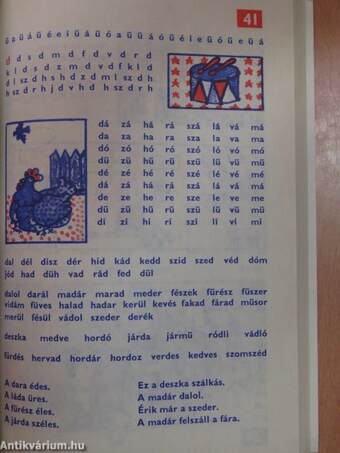 41
ü a ű á ü é e i ü á ű ó a ű ü á ó ű é i e ü ó ü e ű á
d d s d m d f d v d r d
k l d s d z m d v d f k l d
d l sz d h s h d z d m l sz d h
h sz d r h j d v h d h sz d r h
dá zá há rá szá lá vá má
da za ha ra sza la va ma
dó zó hó ró szó ló vó mó
dü zü hü rü szü lü vü mü
dé zé hé ré szé lé vé mé
dá zá há rá szá lá vá má
de ze he re sze le ve me
dü zü hü rü szü lü vü mü
di zi hi ri szi li vi mi
dal dél disz dér hid kád kedd szid szed véd dóm
jód had düh vad rád fed dül
dalol darál madár marad meder fészek fűrész fűszer
vidám füves halad hadar kerül kevés fakad fárad műsor
merül fésül vádol szeder derék
deszka medve hordó járda jármű ródli vádló
fürdés hervad hordár hordoz verdes kedves szomszéd
A dara édes.
A láda üres.
A fűrész éles.
A járda széles.
Ez a deszka szálkás.
A madár dalol.
Érik már a szeder.
A madár felszáll a fára.
antikvárium.hu